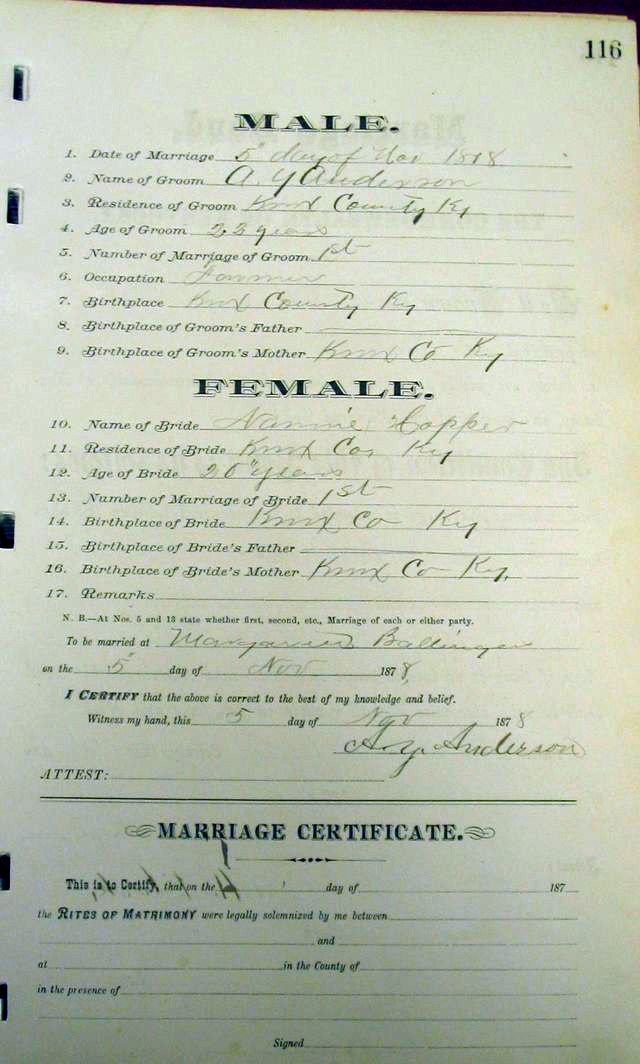 116
MALE.
1. Date of Marriage 5" day of Nov 1878
2. Name of Groom A. Y Anderson
3. Residence of Groom Knox County Ky
4. Age of Groom years
5. Number of Marriage of Groom 1st
6. Occupation Farmer
7. Birthplace Knox County Ky
8. Birthplace of Groom's Father
9. Birthplace of Groom's Mother Knox Co Ky
FEMALE.
10. Name of Bride Nannie Hopper
11. Residence of Bride Knox Co Ky
12. Age of Bride 20" years
13. Number of Marriage of Bride 1st
14. Birthplace of Bride Knox Co Ky
15. Birthplace of Bride's Father
16. Birthplace of Bride's Mother Knox Co Ky.
17. Remarks
N. B.—At Nos. 5 and 13 state whether first, second, etc., Marriage of each or either party.
To be married at Ballinger
on the 5" day of Nov 1878,
I CERTIFY that the above is correct to the best of my knowledge and belief.
Witness my hand, this 5 day of Nov 1878
A. Y. Anderson
ATTEST:
MARRIAGE CERTIFICATE.
This is to Certify, that on the day of 187
the RITES OF MATRIMONY were legally solemnized by me between
and
at in the County of
in the presence of
Signed